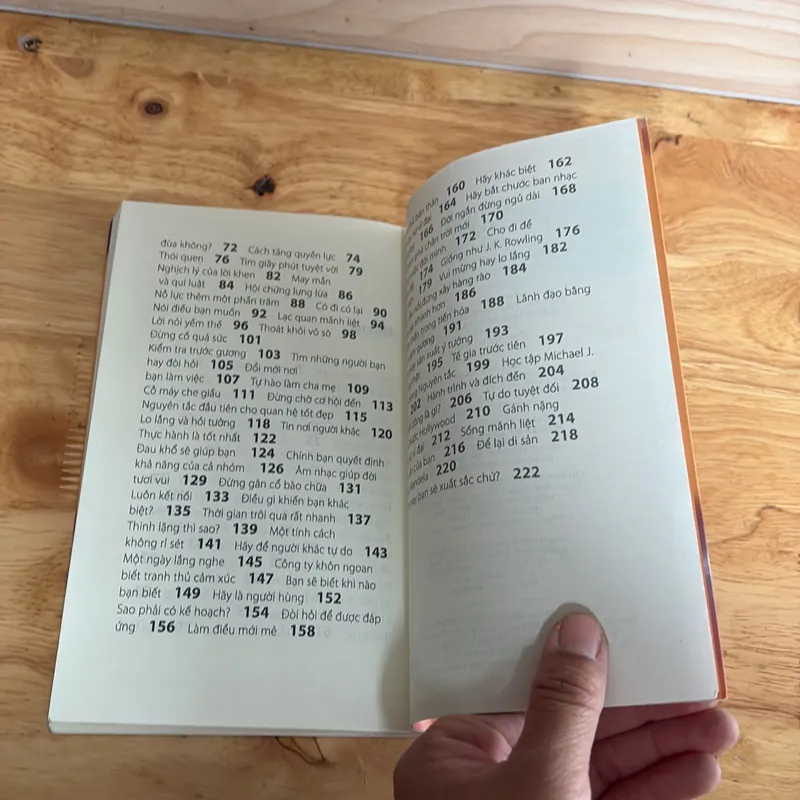 đùa không? 72 Cách tăng quyền lực 74
Thói quen 76 Tìm giây phút tuyệt vời 79
Nghịch lý của lời khen 82 May mắn
và qui luật 84 Hội chứng lưng lừa 86
Nỗ lực thêm một phần trăm 88 Có đi có lại 90
Nói điều bạn muốn 92 Lạc quan mãnh liệt 94
Lời nói yếm thế 96 Thoát khỏi vỏ sò 98
Đừng cố quá sức 101
Kiểm tra trước gương 103 Tìm những người bạn
hay đòi hỏi 105 Đổi mới nơi
bạn làm việc 107 Tự hào làm cha mẹ 109
Cỗ máy che giấu 111 Đừng chờ cơ hội đến 113
Nguyên tắc đầu tiên cho quan hệ tốt đẹp 115
Lo lắng và hồi tưởng 118 Tin nơi người khác 120
Thực hành là tốt nhất 122
Đau khổ sẽ giúp bạn 124 Chính bạn quyết định
khả năng của cả nhóm 126 Âm nhạc giúp đời
tươi vui 129 Đừng gân cổ bào chữa 131
Luôn kết nối 133 Điều gì khiến bạn khác
biệt? 135 Thời gian trôi qua rất nhanh 137
Thinh lặng thì sao? 139 Một tính cách
không rỉ sét 141 Hãy để người khác tự do 143
Một ngày lắng nghe 145 Công ty khôn ngoan
biết tranh thủ cảm xúc 147 Bạn sẽ biết khi nào
bạn biết 149 Hãy là người hùng 152
Sao phải có kế hoạch? 154 Đòi hỏi để được đáp
ứng 156 Làm điều mới mẻ 158
thân 160 Hãy khác biệt 162
đại 164 Hãy bắt chước ban nhạc
166 Đời ngắn đừng ngủ dài 168
chân trời mới 170
đời mình 172 Cho đi để
174 Giống như J. K. Rowling 176
179 Vui mừng hay lo lắng 182
đừng xây hàng rào 184
nhanh hơn 186
trong tiến hóa 188 Lãnh đạo bằng
gương 191
sản xuất ý tưởng 193
195 Tề gia trước tiên 197
Nguyên tắc 199 Học tập Michael J.
202 Hành trình và đích đến 204
công là gì? 206 Tự do tuyệt đối 208
Hollywood 210 Gánh nặng
vĩ đại 212 Sống mãnh liệt 214
của bạn 216 Để lại di sản 218
220
bạn sẽ xuất sắc chứ? 222